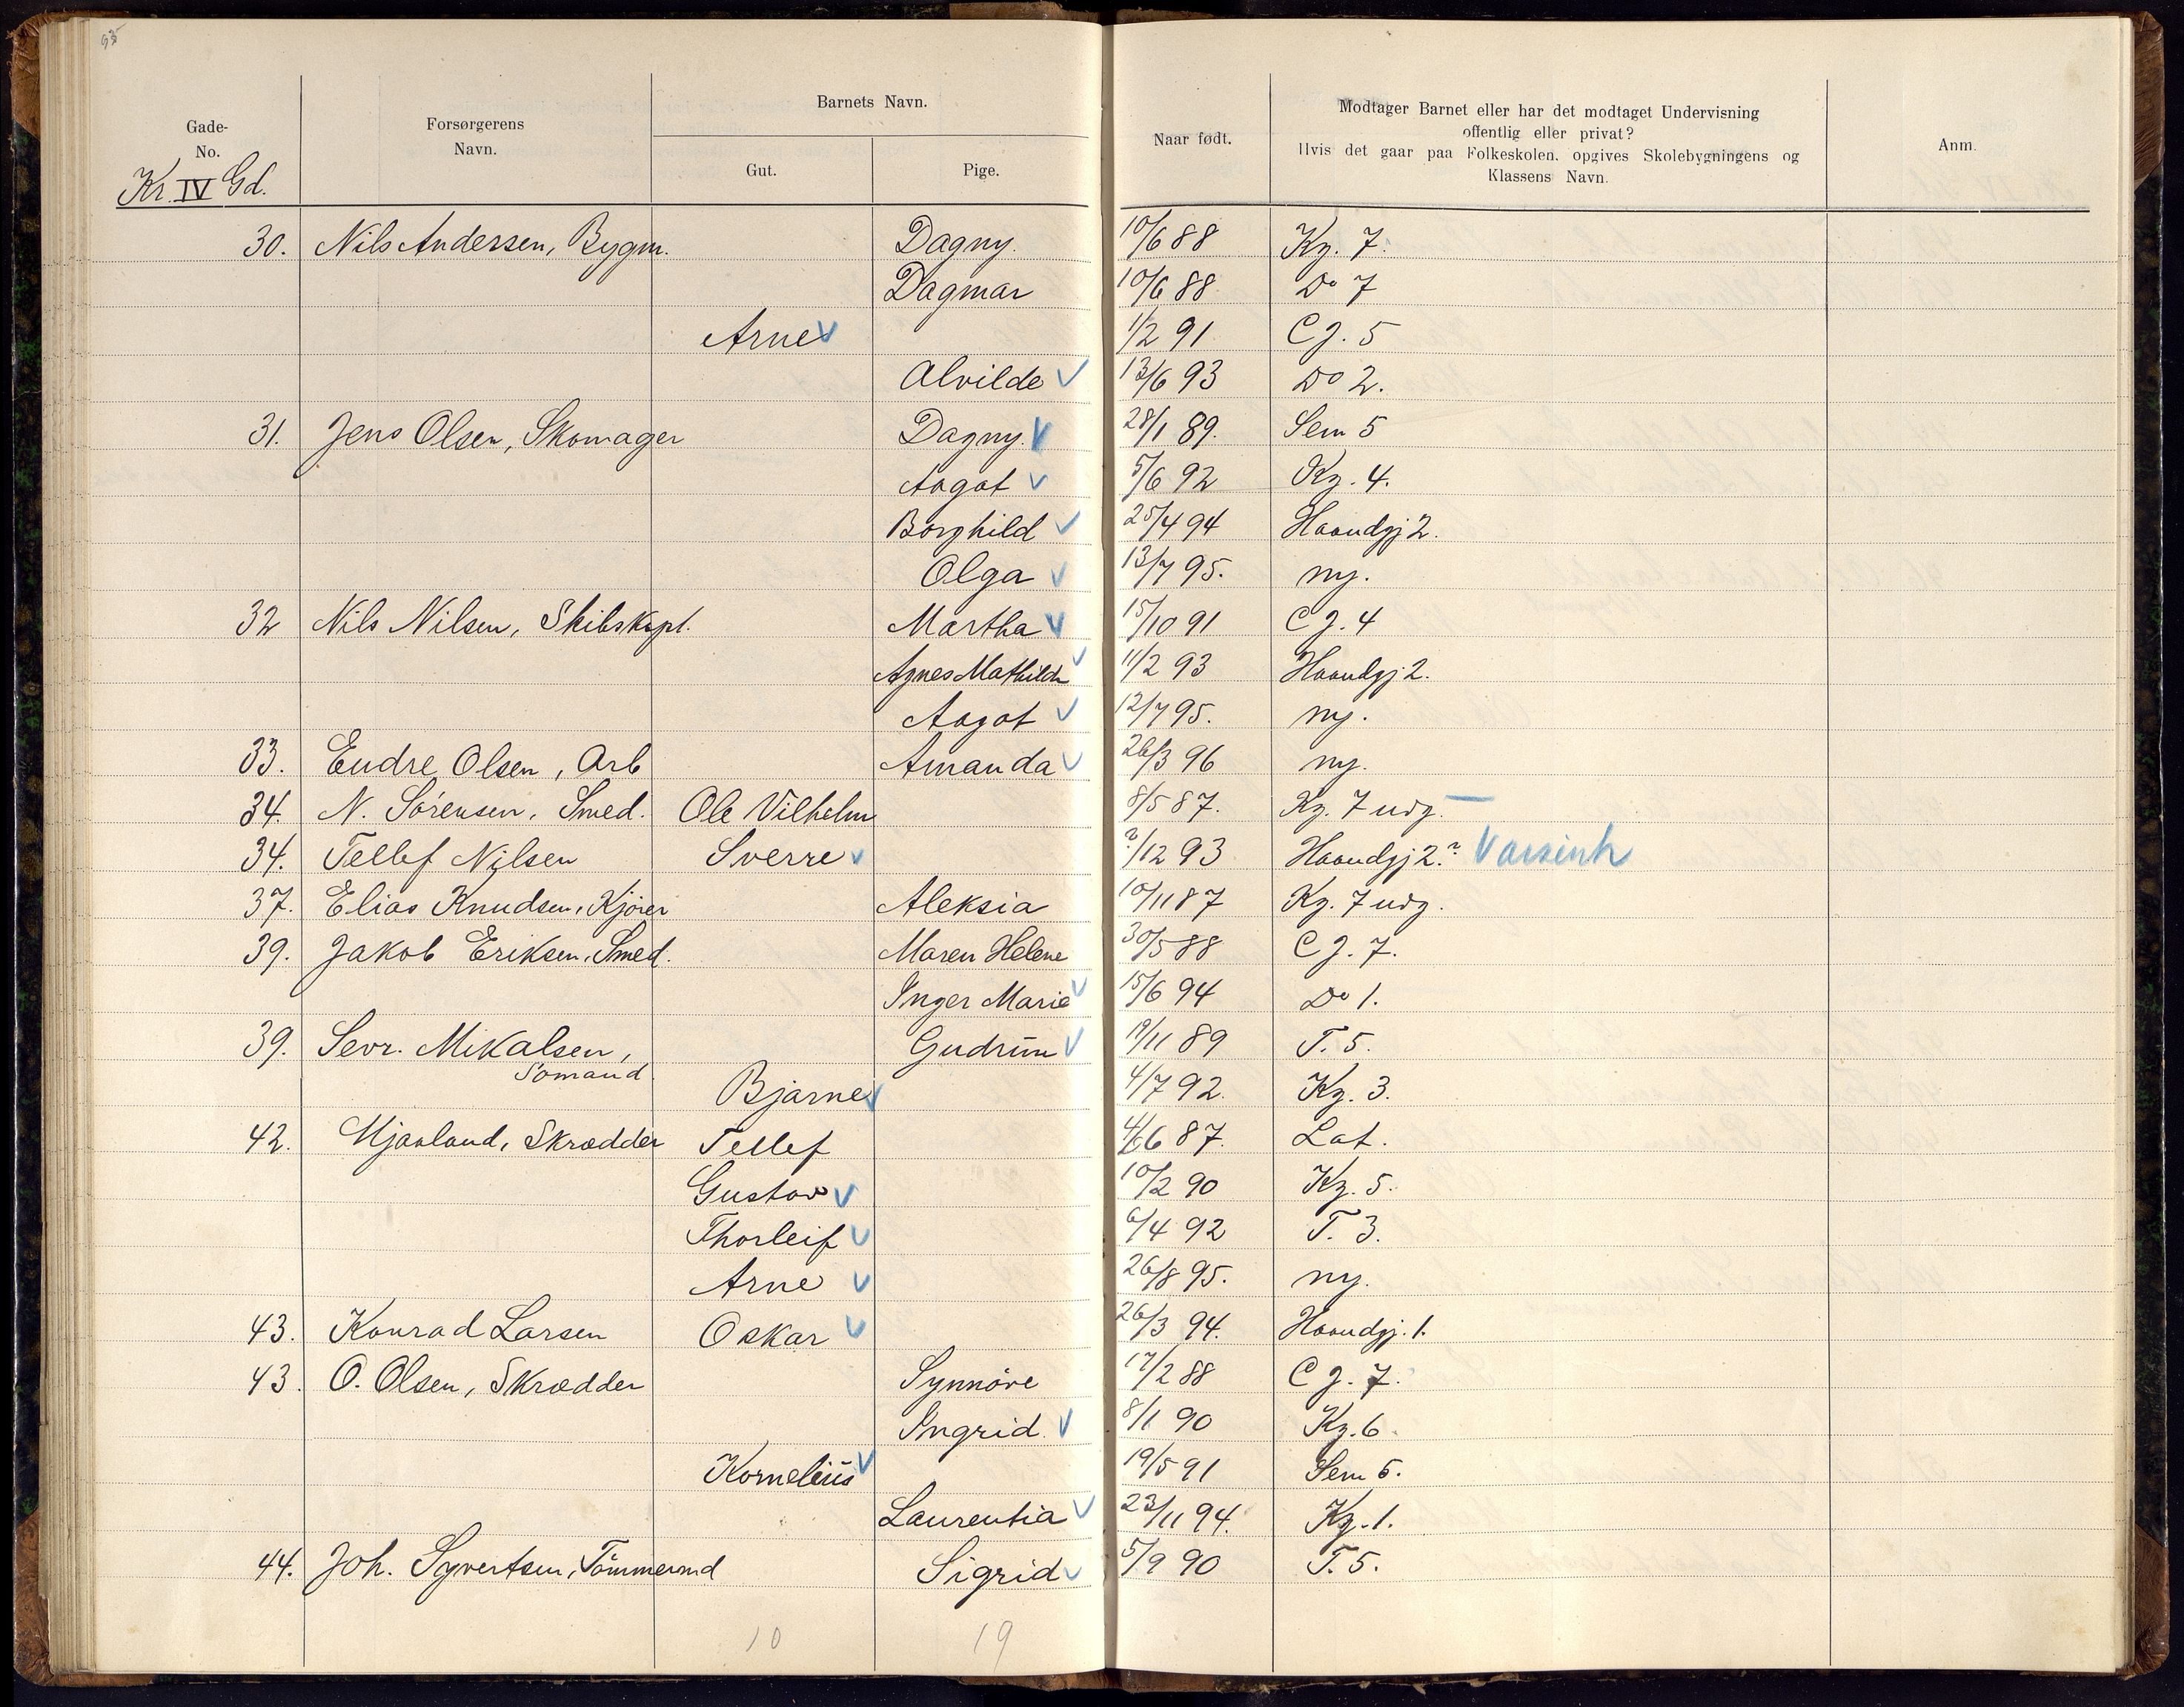 93
Gade-
No.
Kr. IV Gd.
Forsørgerens
Navn.
Barnets Navn.
Gut.
Pige.
Naar født.
Modtager Barnet eller har det modtaget Undervisning
offentlig eller privat?
Hvis det gaar paa Folkeskolen, opgives Skolebygningens og
Klassens Navn.
Anm.
30. Nils Andersen, Bygm. Dagny. 10/6 88 Kg. 7.
Dagmar 10/6 88 Do 7
Arne V 1/2 91 C J. 5
Alvilde V 13/6 93 Do 2.
31. Jens Olsen, Skomager Dagny. V 28/1 89. Sem 5
Aagot V 5/6 92 Kg. 4.
Borghild V 25/4 94 Haandgj 2.
Olga V 13/7 95. ny.
32 Nils Nilsen, Skibskpl. Martha V 15/10 91 C J. 4
Agnes Mathilde V 11/2 93 Haandgj 2.
Aagot V 12/7 95. ny.
33. Endre Olsen, Arb Amanda V 26/3 96 ny.
34. N. Sörensen, Smed. Ole Vilhelm 8/5 87. Kg. 7 udg.
34. Tellef Nilsen Sverre V ?/12 93 Haandgj 2.?
37. Elias Knudsen, Kjörer Aleksia 10/11 87 Kg. 7 udg.
39. Jakob Eriksen, Smed. Maren Helene 30/5 88 C J. 7.
Inger Marie V 15/6 94 Do 1.
39. Sevr. Mikalsen, Gudrun V 19/11 89 T. 5.
Sömand.
Bjarne V 4/7 92. Kg. 3.
42. Mjaaland, Skrædder Tellef 4/6 87. Lat.
Gustav V 10/2 90 Kg. 5.
Thorleif V 6/4 92 T. 3.
Arne V 26/8 95. ny.
43. Konrad Larsen Oskar V 26/3 94. Haandgj. 1.
43. O. Olsen, Skrædder Synnöve 17/2 88 C J. 7.
Ingrid. V 8/1 90 Kg. 6
Kornelius V 19/5 91 Sem 5.
Laurentia V 23/11 94. Kg. 1.
44. Joh. Syvertsen, Tömmermd Sigrid V 5/9 90 T. 5.
10 19